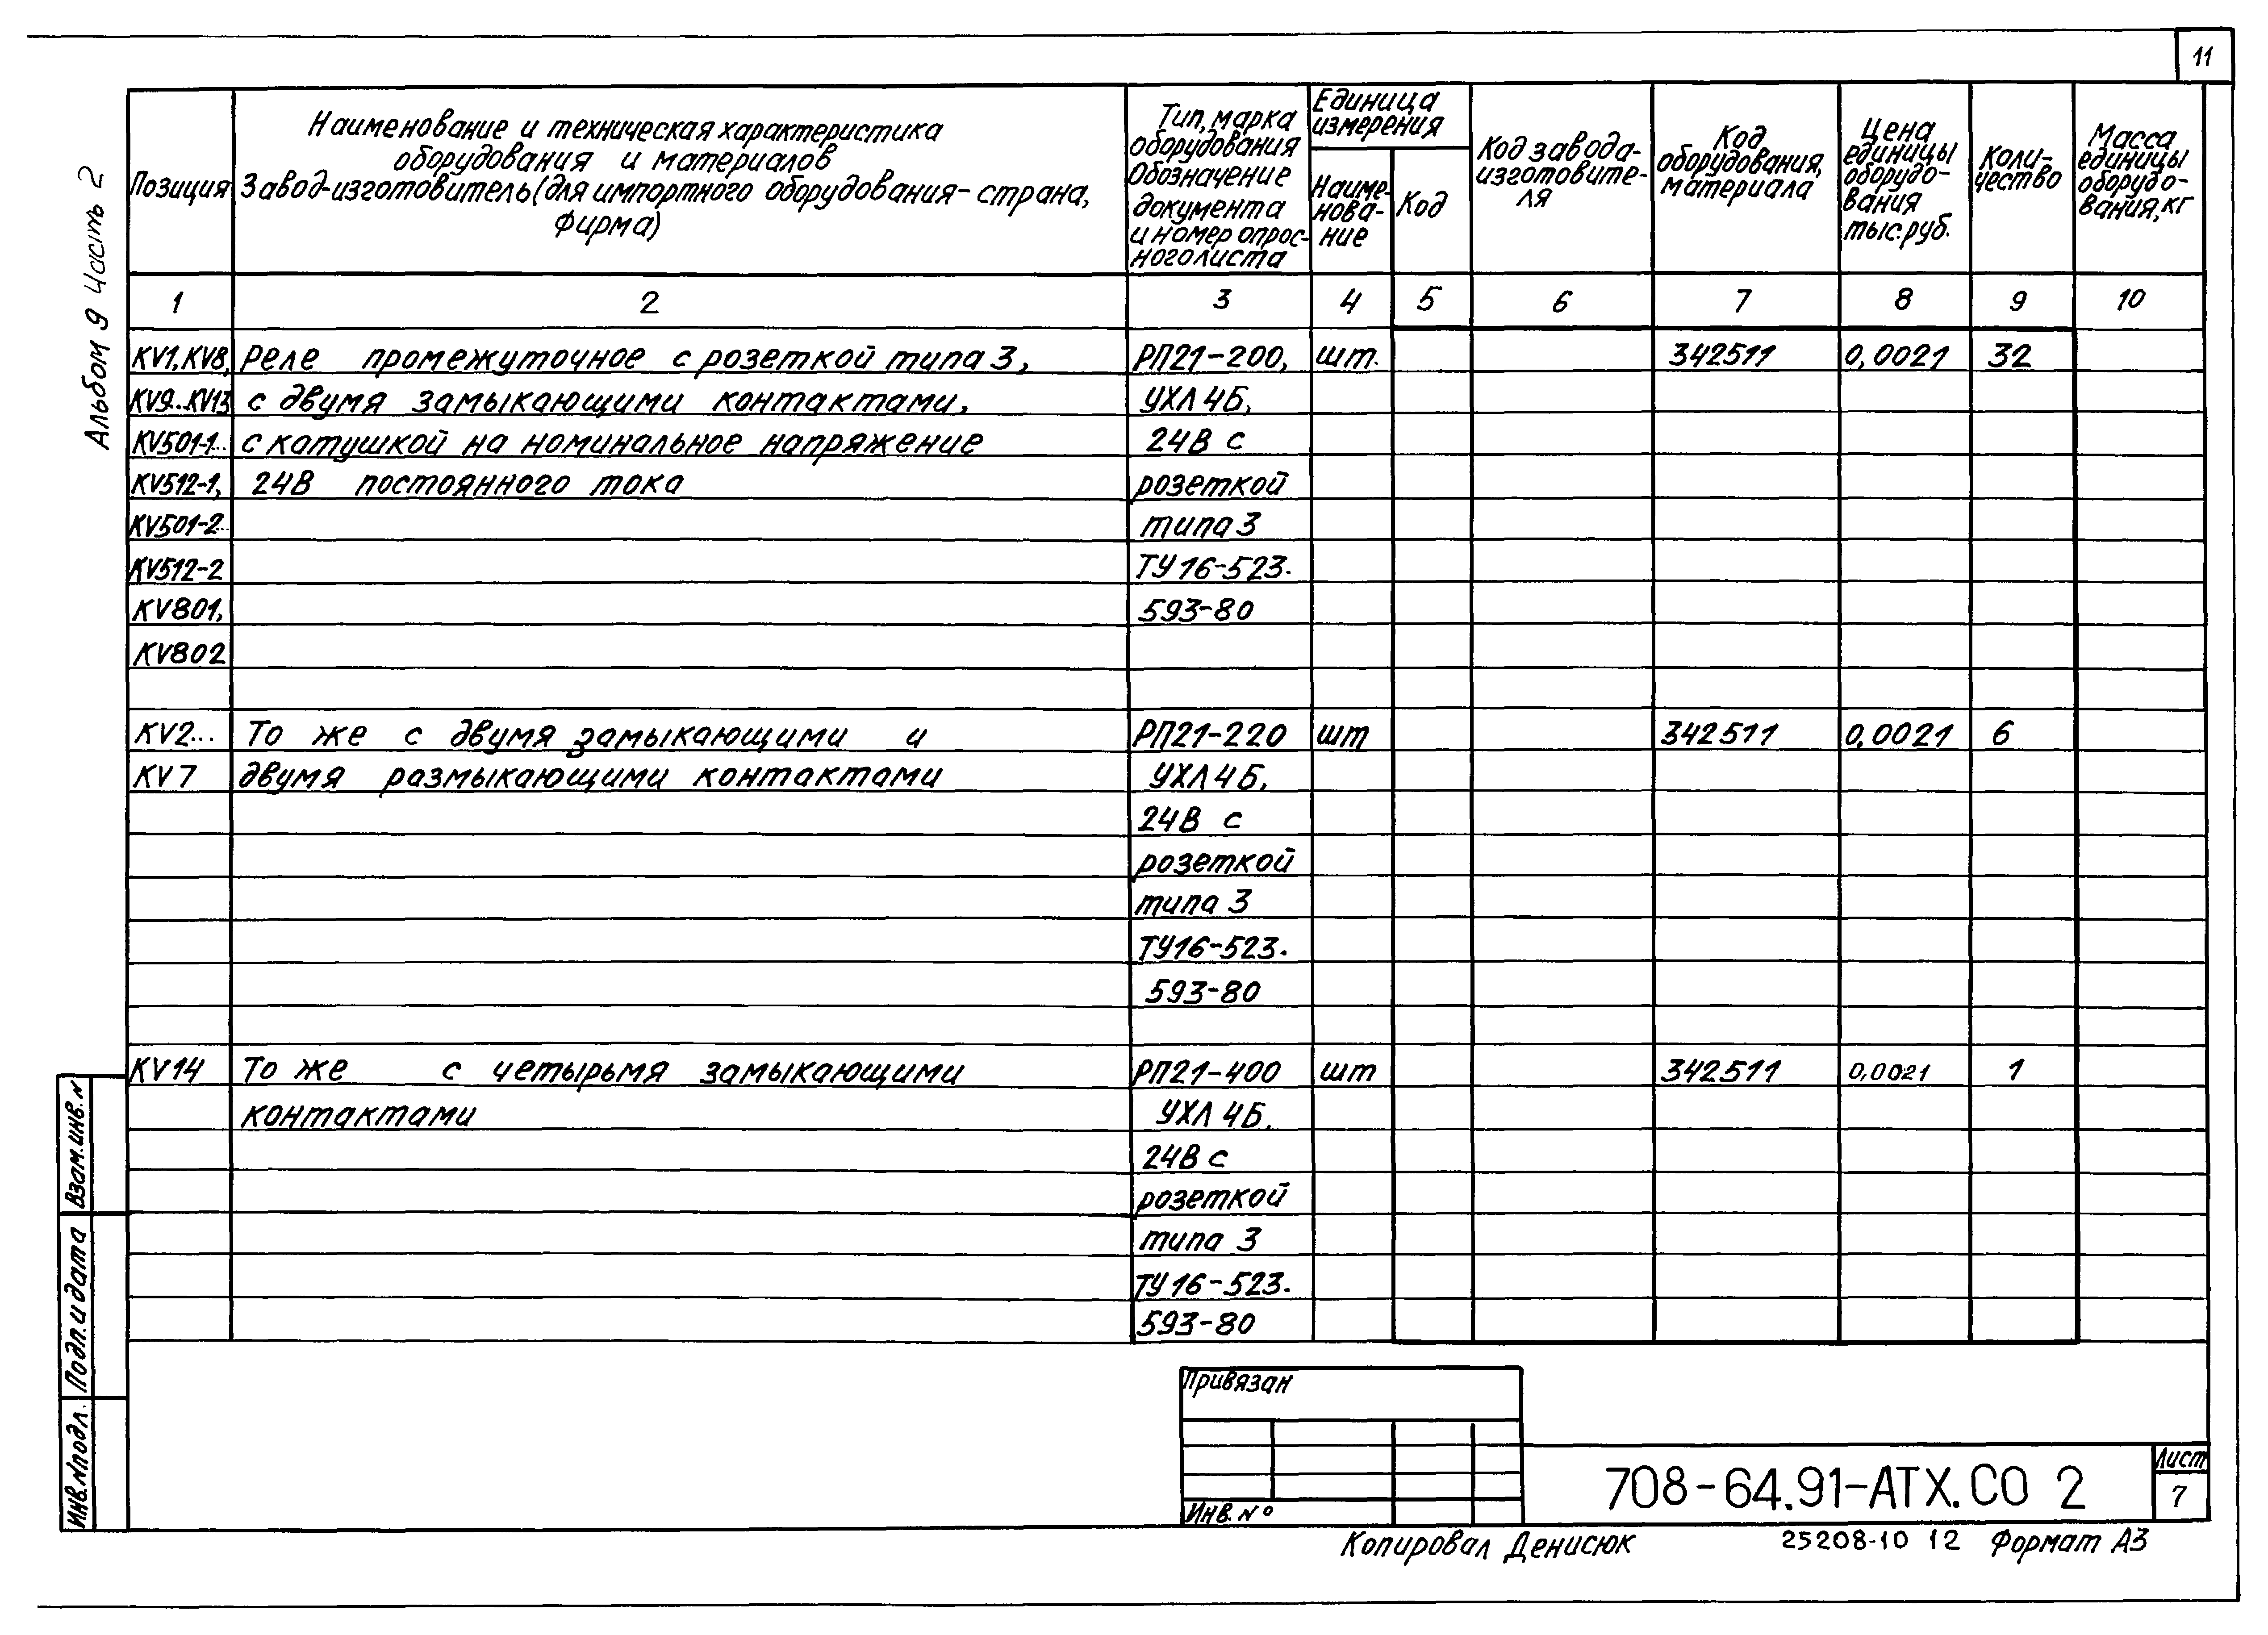 11
Альбом 9 Часть 2
Позиция
Наименование и техническая характеристика
оборудования и материалов
Завод-изготовитель (для импортного оборудования - страна,
фирма)
Тип, марка
оборудования
Обозначение
документа
и номер опрос-
ного листа
Единица
измерения
Наиме-
нова-
ние
Код
Код завода-
изготовите-
ля
Код
оборудования,
материала
Цена
единицы
оборудо-
вания
тыс.руб.
Коли-
чество
Масса
единицы
оборудо-
вания, кг
1 2 3 4 5 6 7 8 9 10
KV1, KV8, Реле промежуточное с розеткой типа 3, РП21-200, шт. 342511 0,0021 32
KV9...KV13 с двумя замыкающими контактами, УХЛ 4Б,
KV501-1... с катушкой на номинальное напряжение 24В с
KV512-1, 24В постоянного тока розеткой
KV501-2... типа 3
KV512-2 ТУ 16-523.
KV801, 593-80
KV802
KV2... То же с двумя замыкающими и РП21-220 шт 342511 0,0021 6
KV7 двумя размыкающими контактами УХЛ 4Б,
24В с
розеткой
типа 3
ТУ16-523.
593-80
KV14 То же с четырьмя замыкающими РП21-400 шт 342511 0,0021 1
контактами УХЛ 4Б,
24В с
розеткой
типа 3
ТУ 16-523.
593-80
Взам. инв. N
Подп. и дата
Инв. N подл.
Привязан
Инв. №
708-64.91-АТХ.СО 2
Лист
7
Копировал Денисюк 25208-10 12 Формат А3